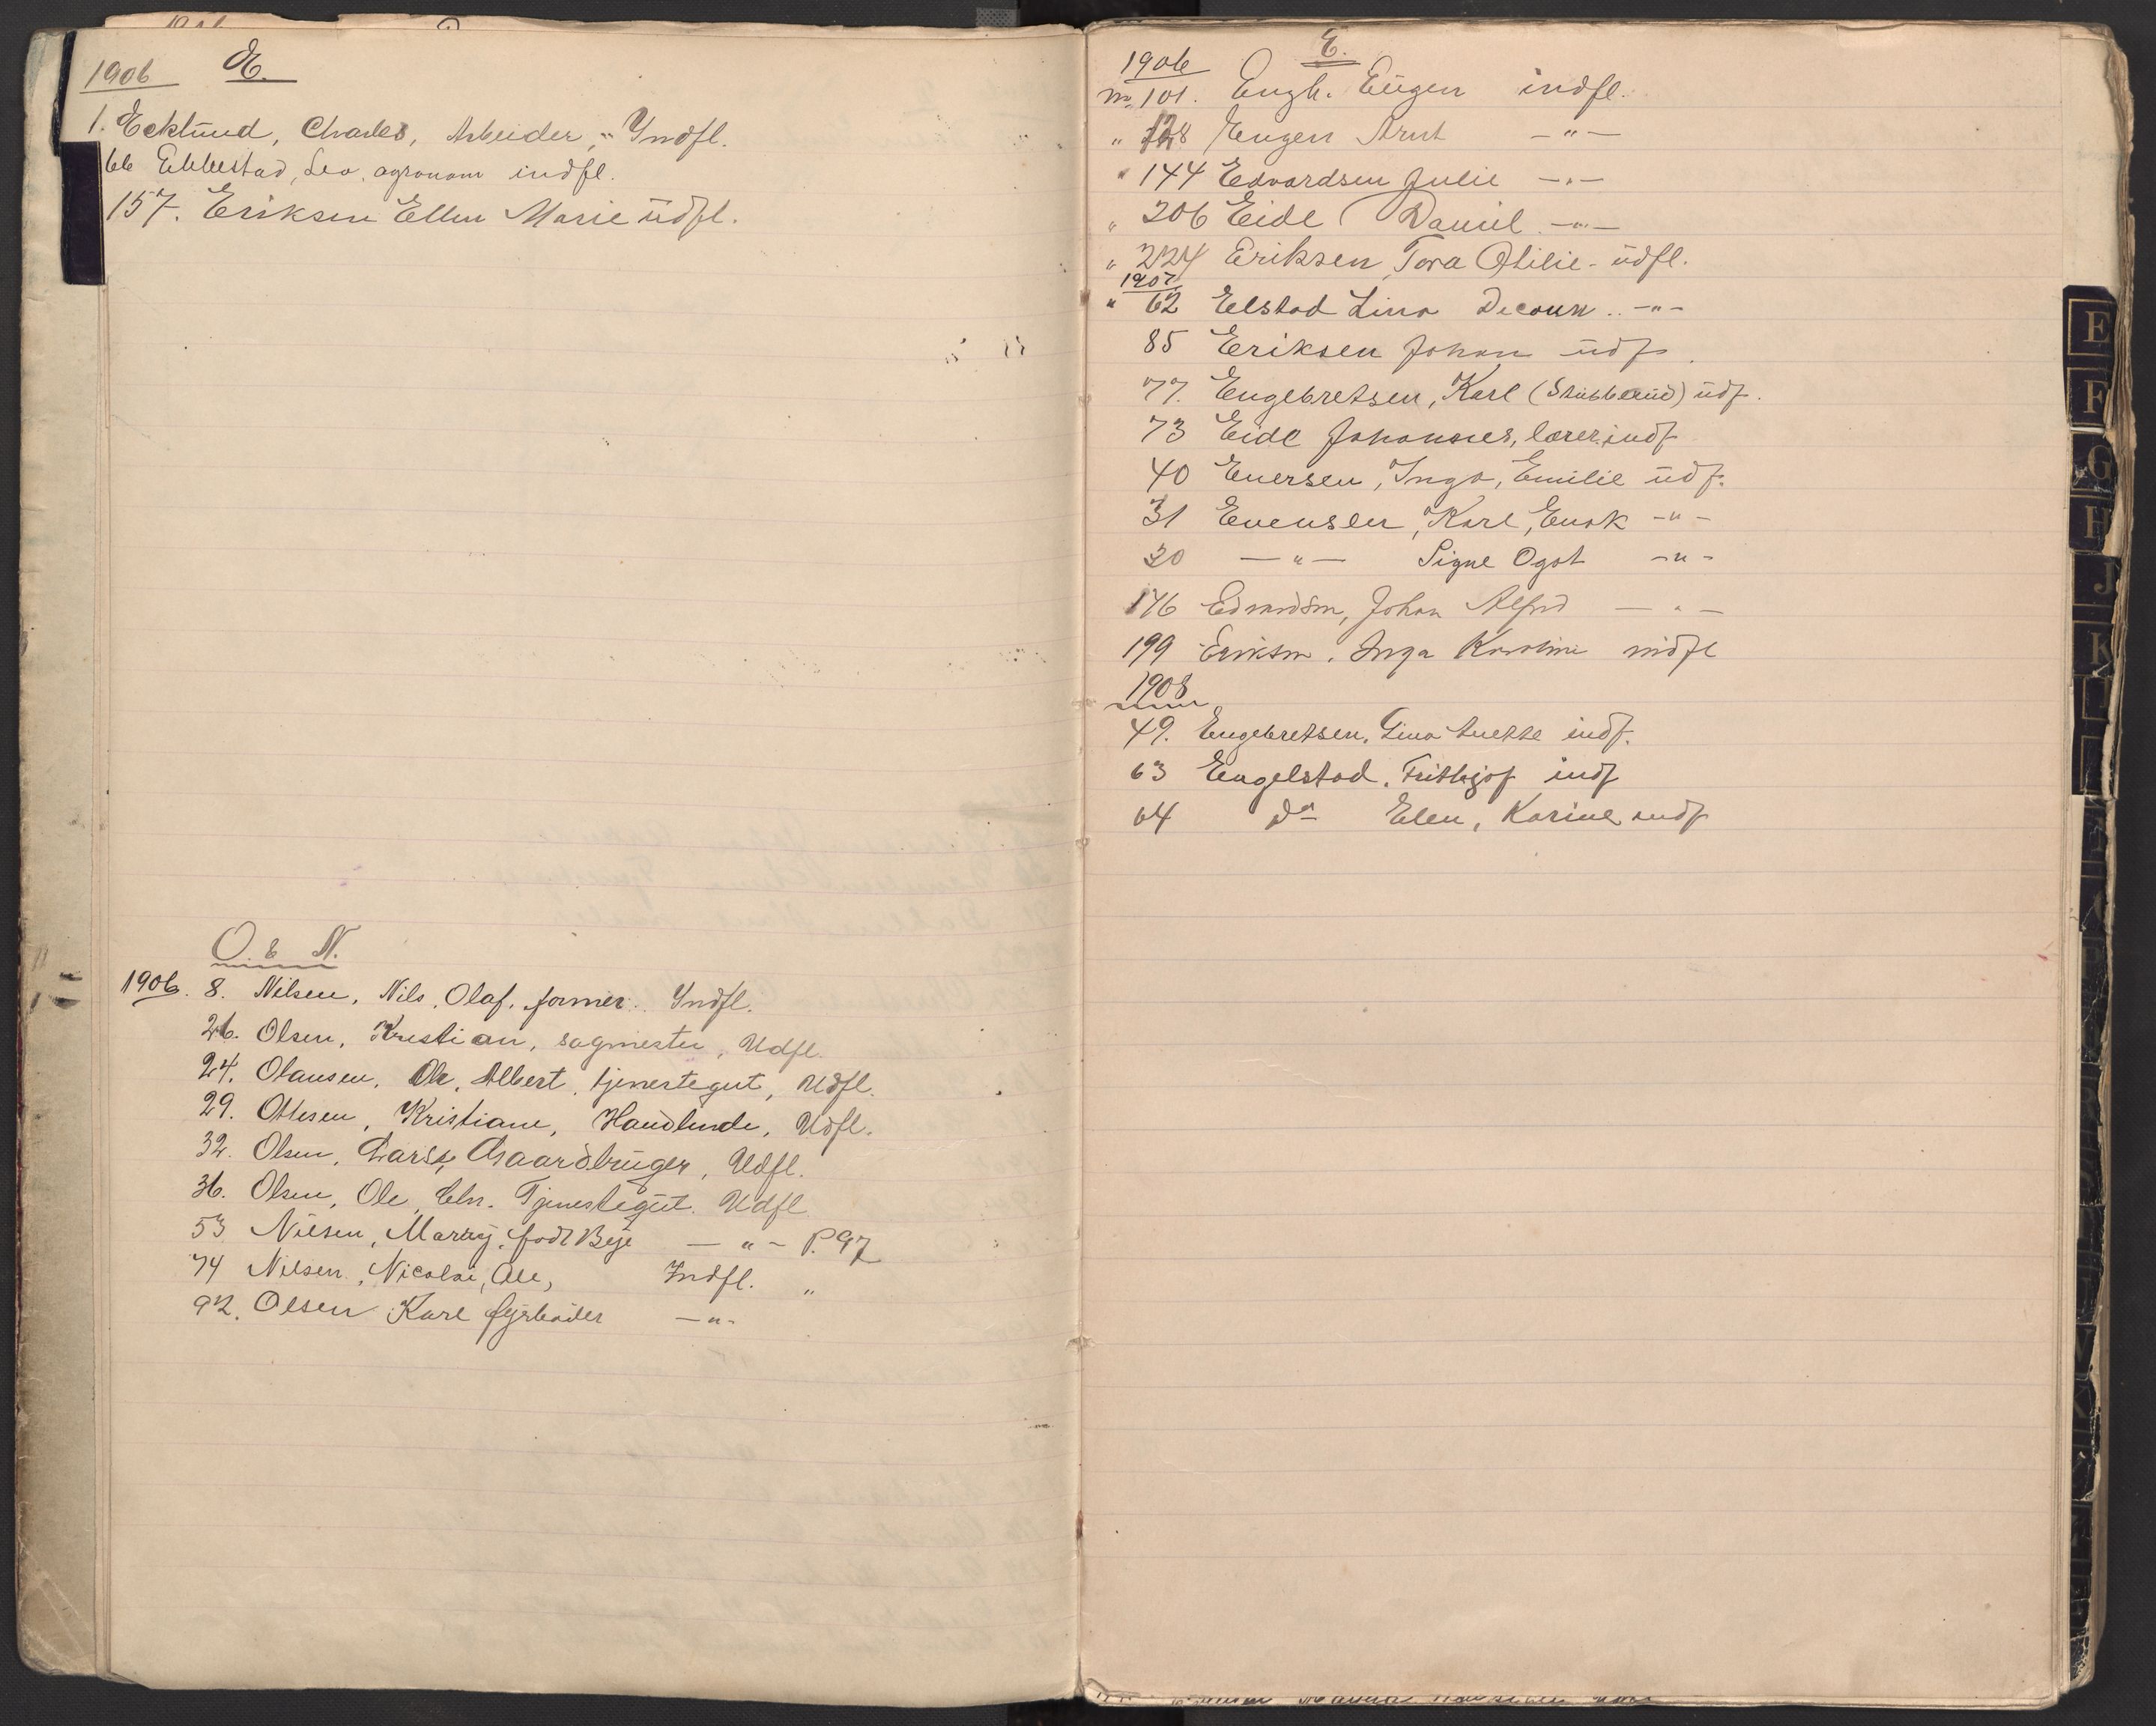 1906 E.
1. Ecklund, Charles, Arbeider, " Yndfl.
66 Ekkestad, Leo, agronom indfl.
157. Eriksen Ellen Marie üdfl.
O. & N.
1906. 8. Nilsen, Nils, Olaf, former. Yndfl.
26. Olsen, Kristian, sagmester, Udfl.
24. Olausen, Ole, Albert, tjenestegut, Udfl.
29. Ottesen, Kristiane, Handlende, Udfl.
32. Olsen, Lars, Gaardbruger, Udfl.
36. Olsen, Ole, Chr. Tjenestegüt. Udfl.
53 Nilsen, Marry, født Beje — " - P. 97
74 Nilsen, Nicolai, Ole, Indfl. "
92. Olsen Karl fyrbøder — " -
E F G H J K
1906 E.
No 101. Engh. Eügen indfl.
" 128 Engen Arnt — " —
" 144 Edvardsen Julie — " —
" 206 Eide Daniel — " —
" 224 Eriksen Tora Otilie - üdfl.
1907
" 62 Elstad Lina - " -
85 Eriksen Johan üdf.
77. Engebretsen, Karl (Stubberüd) üdf.
73 Eide Johannes, lærer indf
40 Enersen, Inga, Emilie üdf.
31 Evensen, Karl, Enok - " -
30 — " — Signe Ogot - " -
176 Edvardsen, Johan Alfred — " —
199 Eriksen, Inga Karoline indfl
1908
49. Engebretsen, Lina Anette indf.
63 Engelstad, Frithjof indf
64 do Elen, Karine indf